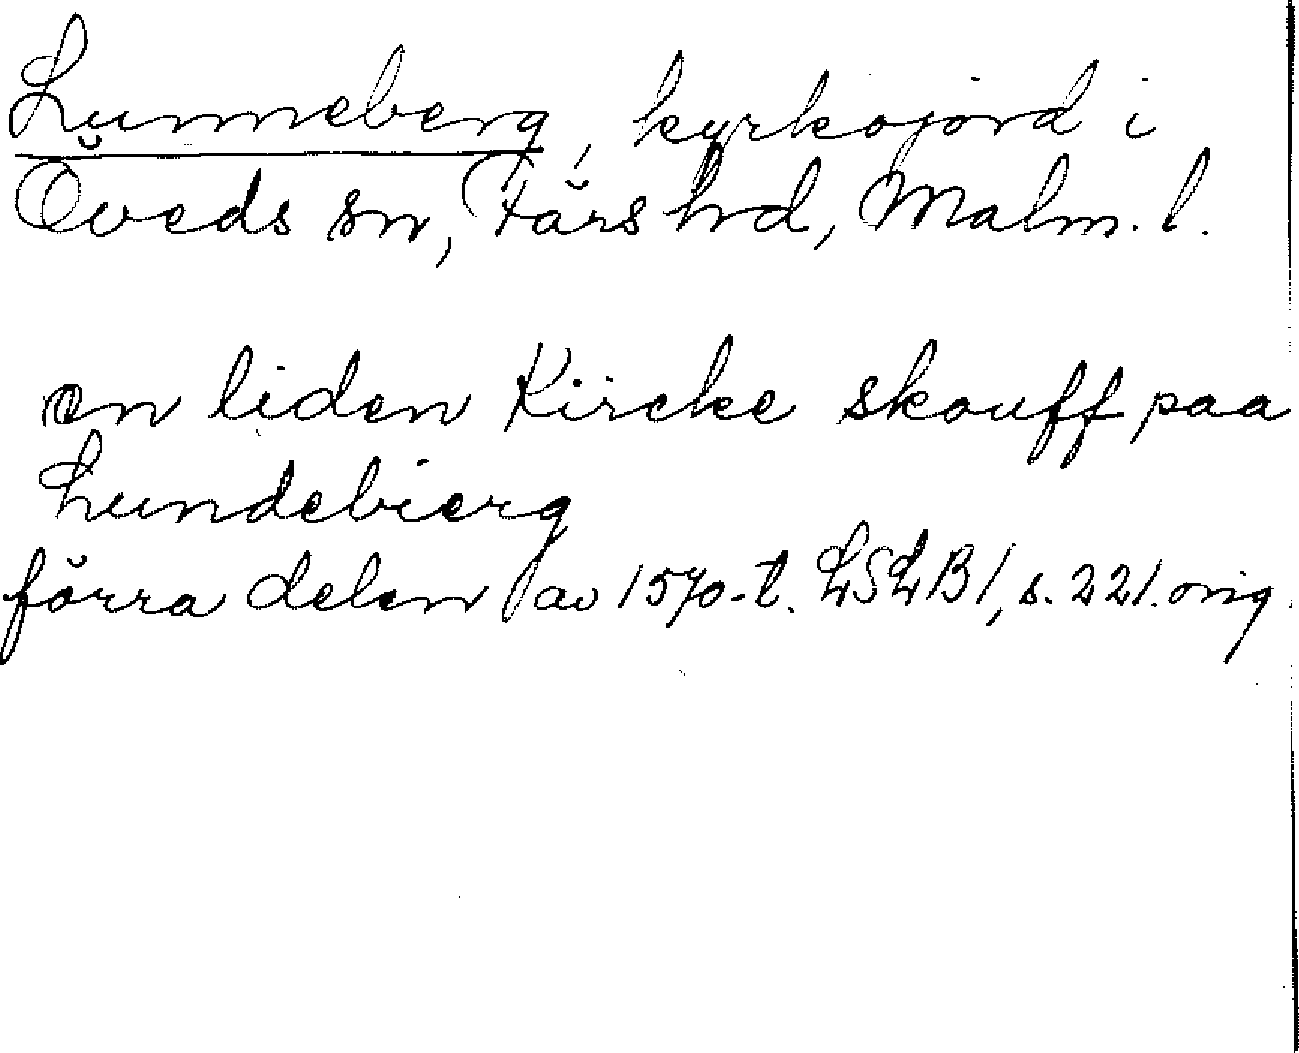 Lunneberg, kyrkojord i
Öveds sn, Färs hd, Malm. l.
en liden Kircke skouff paa
Lundebierg
förra delen av 1570-t. LSLB1, s. 221. orig.